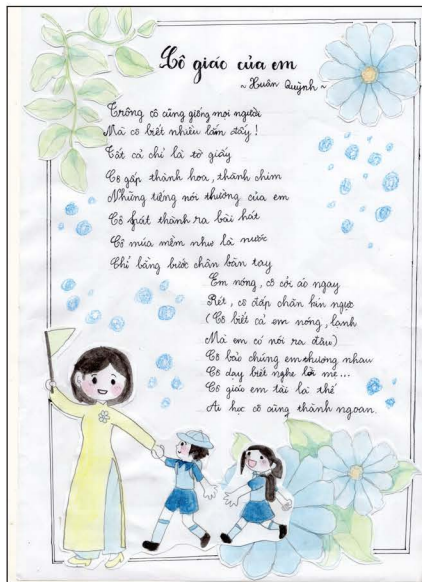 Cô giáo của em
~ Xuân Quỳnh ~
Trông cô cũng giống mọi người
Mà cô biết nhiều lắm đấy!
Tất cả chỉ là tờ giấy
Cô gấp thành hoa, thành chim
Những tiếng nói thường của em
Cô hát thành ra bài hát
Cô múa mềm như là nước
Chỉ bằng bước chân bàn tay
Em nóng, cô cởi áo ngay
Rét, cô đắp chăn kín ngực
(Cô biết cả em nóng, lạnh
Mà em có nói ra đâu)
Cô bảo chúng em thương nhau
Cô dạy biết nghe lời mẹ...
Cô giáo em tài là thế
Ai học cô cũng thành ngoan.